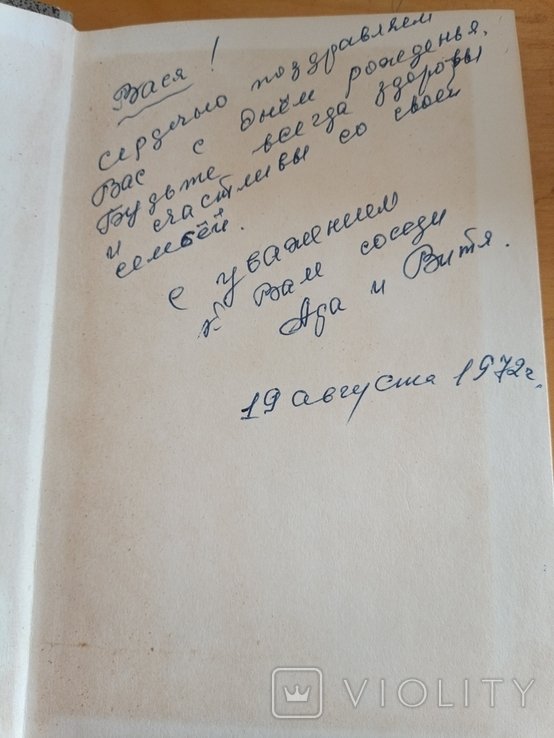 Вася!
Сердечно поздравляем
Вас с днём рожденья.
Будьте всегда здоровы
и счастливы со своей
семьёй.
С уважением
к Вам соседи
Ада и Витя.
19 августа 1972г.
VIOLITY